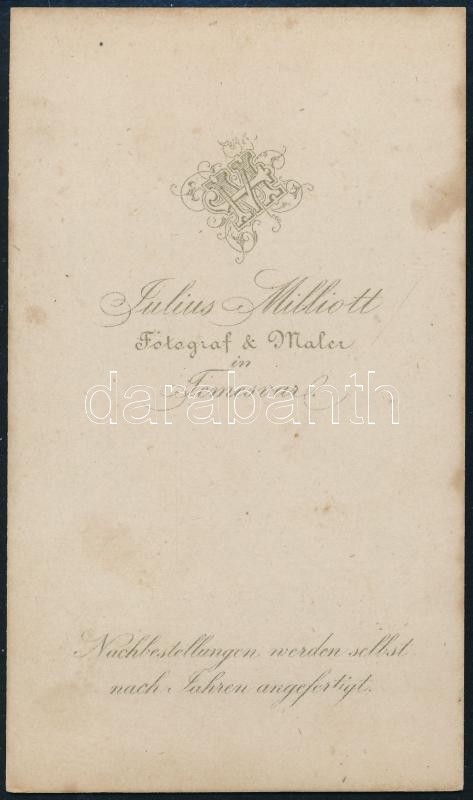 Julius Milliott
Fotograf & Maler
in
Temesvar.
darabanth
Nachbestellungen werden selbst
nach Jahren angefertigt.